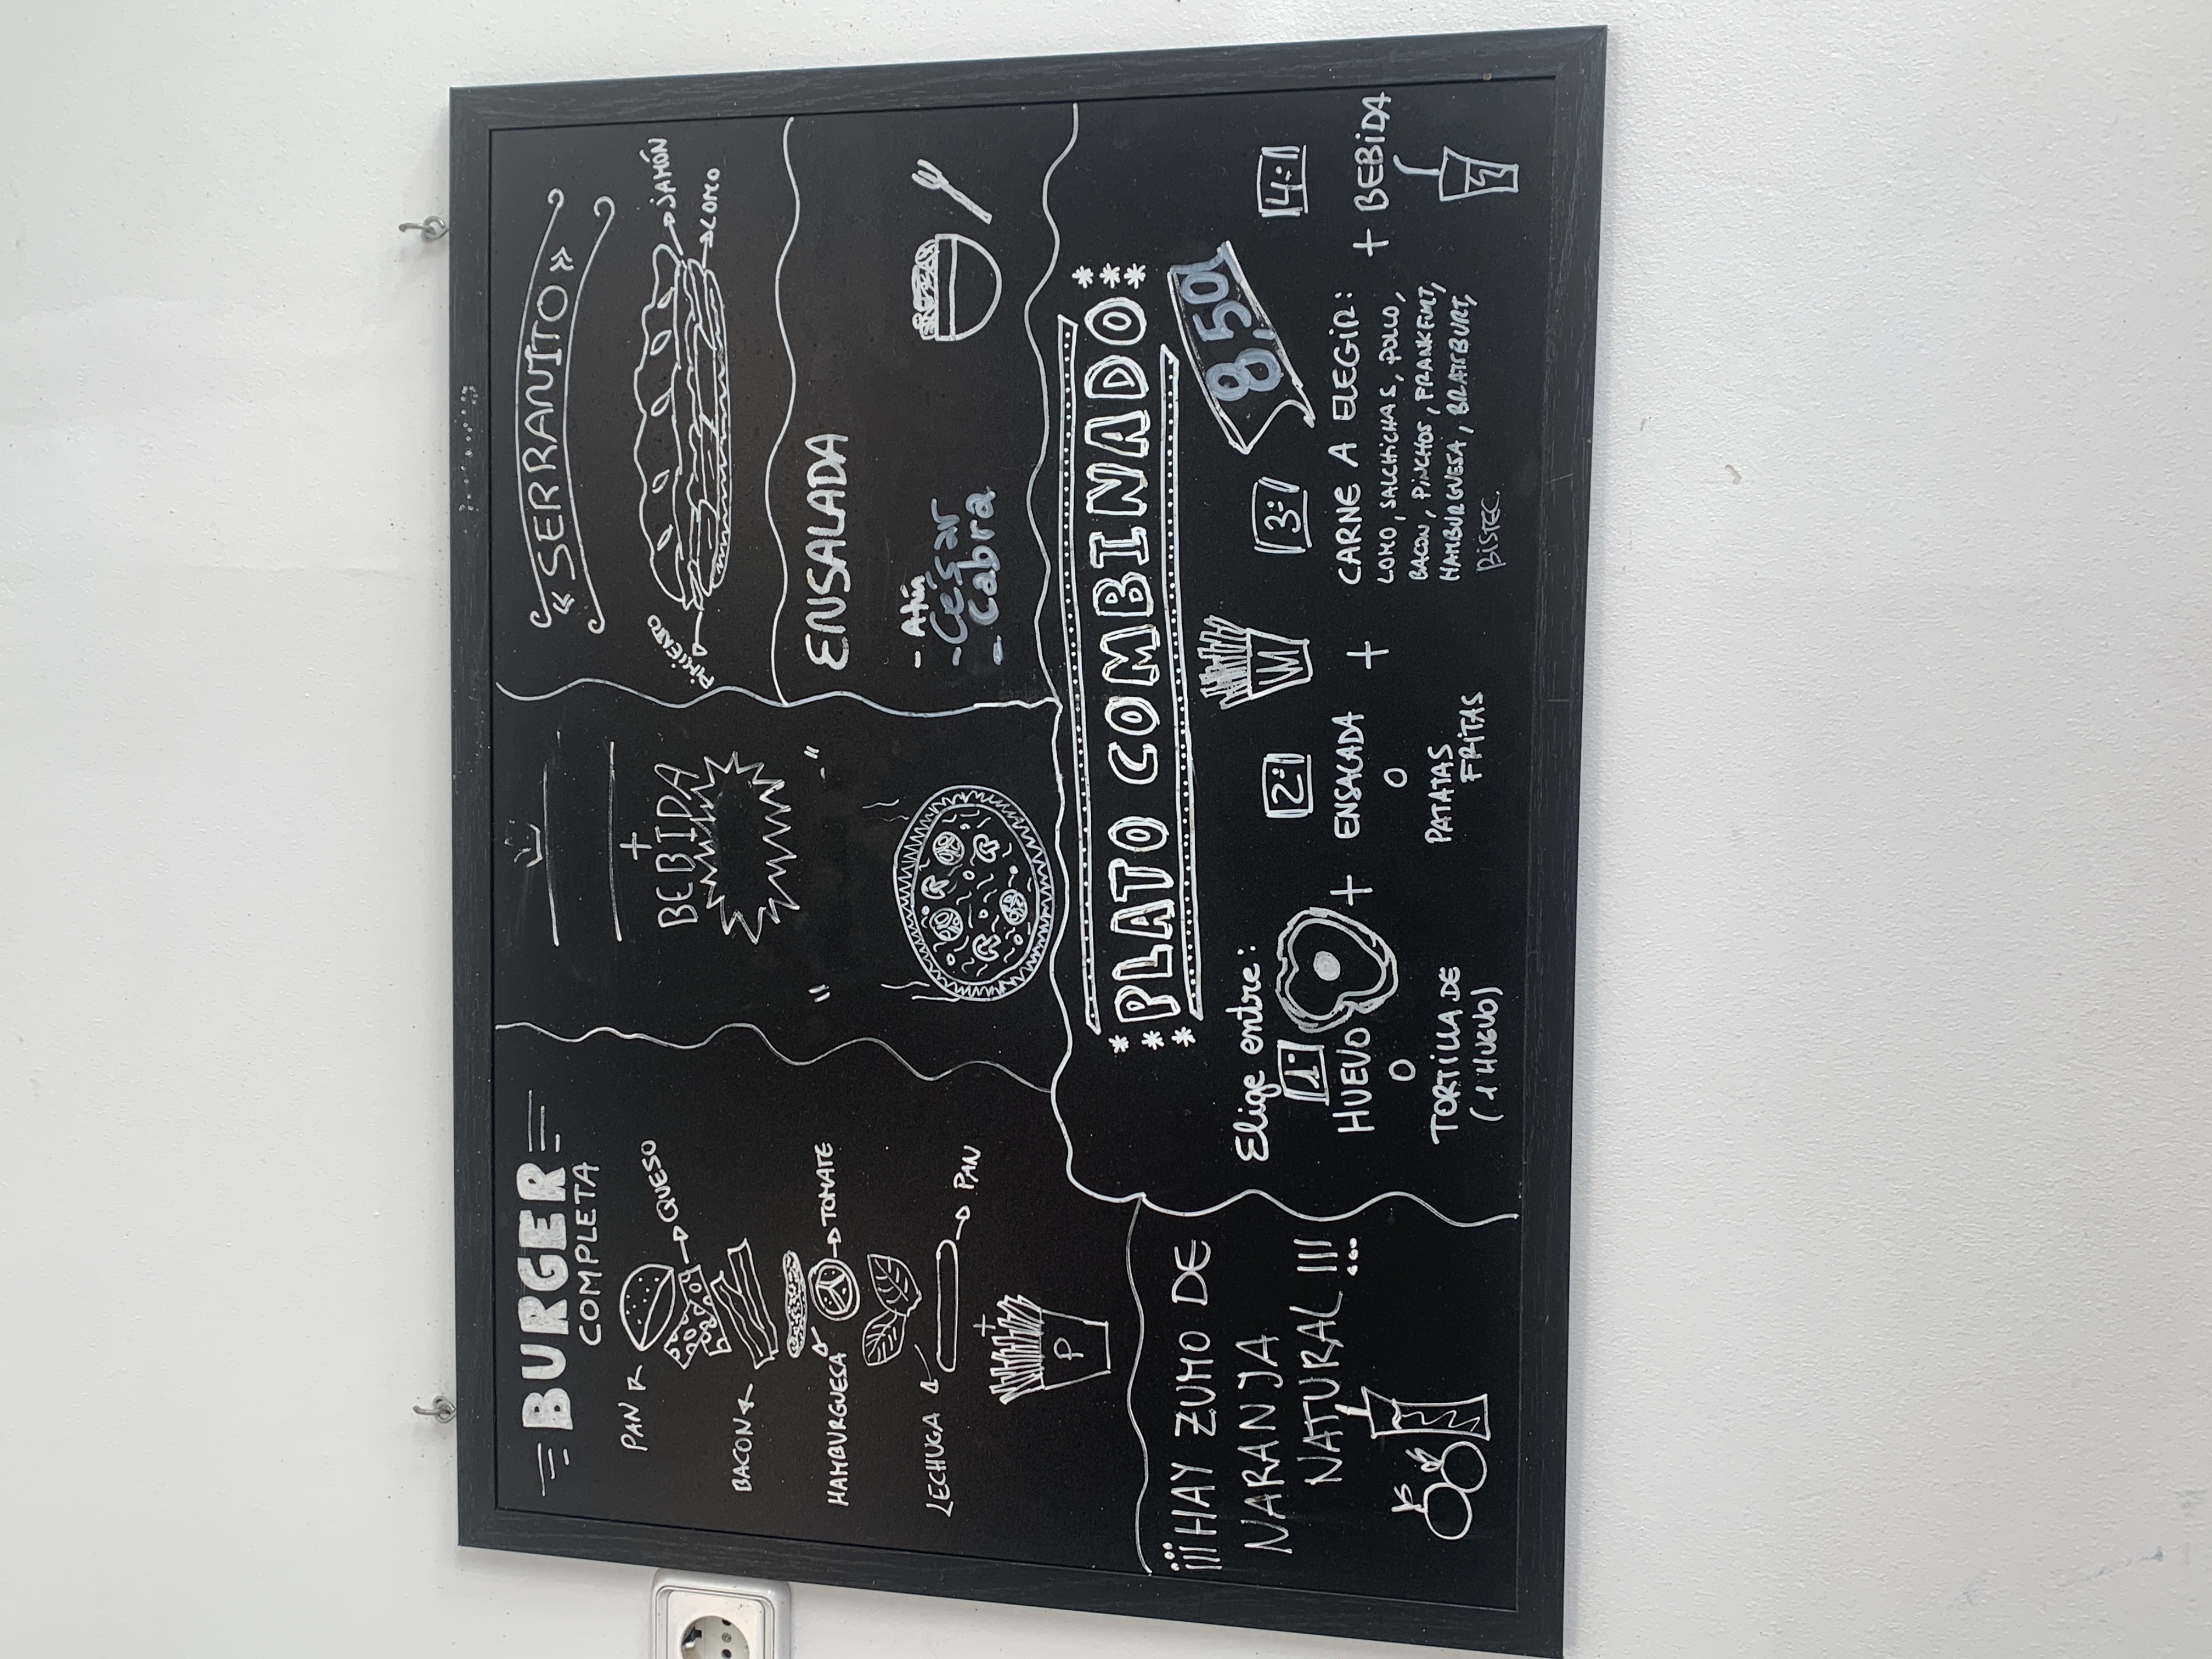 BURGER
COMPLETA
PAN
QUESO
BACON
HAMBURGUESA
TOMATE
LECHUGA
PAN
+
P
+
BEBIDA
" - "
« SERRANITO »
JAMÓN
LOMO
PIMIENTO
ENSALADA
- Atún
- César
- Cabra
¡¡¡HAY ZUMO DE
NARANJA
NATURAL!!!
*** PLATO COMBINADO ***
8,50
Elige entre:
1:
HUEVO
O
TORTILLA DE
(1 HUEVO)
+
2:
ENSALADA
O
PATATAS
FRITAS
+
M
3:
CARNE A ELEGIR:
LOMO, SALCHICHAS, POLLO,
BACON, PINCHOS, FRANKFURT,
HAMBURGUESA, BRATBURT,
BISTEC
4:
+ BEBIDA